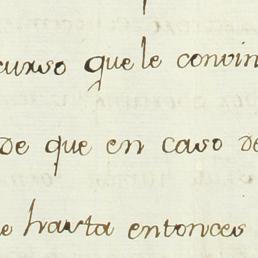 curso que le convin
de que en caso de
e hasta entonces